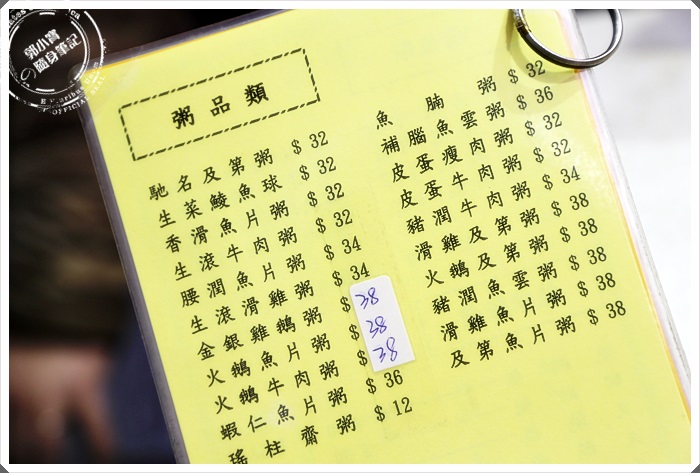 郭小寶
の隨身筆記
粥品類
馳名及第粥 $32
生菜鯪魚球 $32
香滑魚片粥 $32
生滾牛肉粥 $32
腰潤魚片粥 $34
生滾滑雞粥 $34
金銀雞鵝粥 $38
火鵝魚片粥 $38
火鵝牛肉粥 $38
蝦仁魚片粥 $36
瑤柱齋粥 $12
魚腩粥 $32
補腦魚雲粥 $36
皮蛋瘦肉粥 $32
皮蛋牛肉粥 $32
豬潤牛肉粥 $34
滑雞及第粥 $38
火鵝及第粥 $38
豬潤魚雲粥 $38
滑雞魚片粥 $38
及第魚片粥 $38